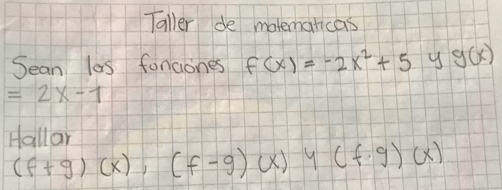 Taller de matematicas
Sean las funciones f(x) = -2x² + 5 y g(x)
= 2x - 1
Hallar
(f+g)(x), (f-g)(x) y (f·g)(x)